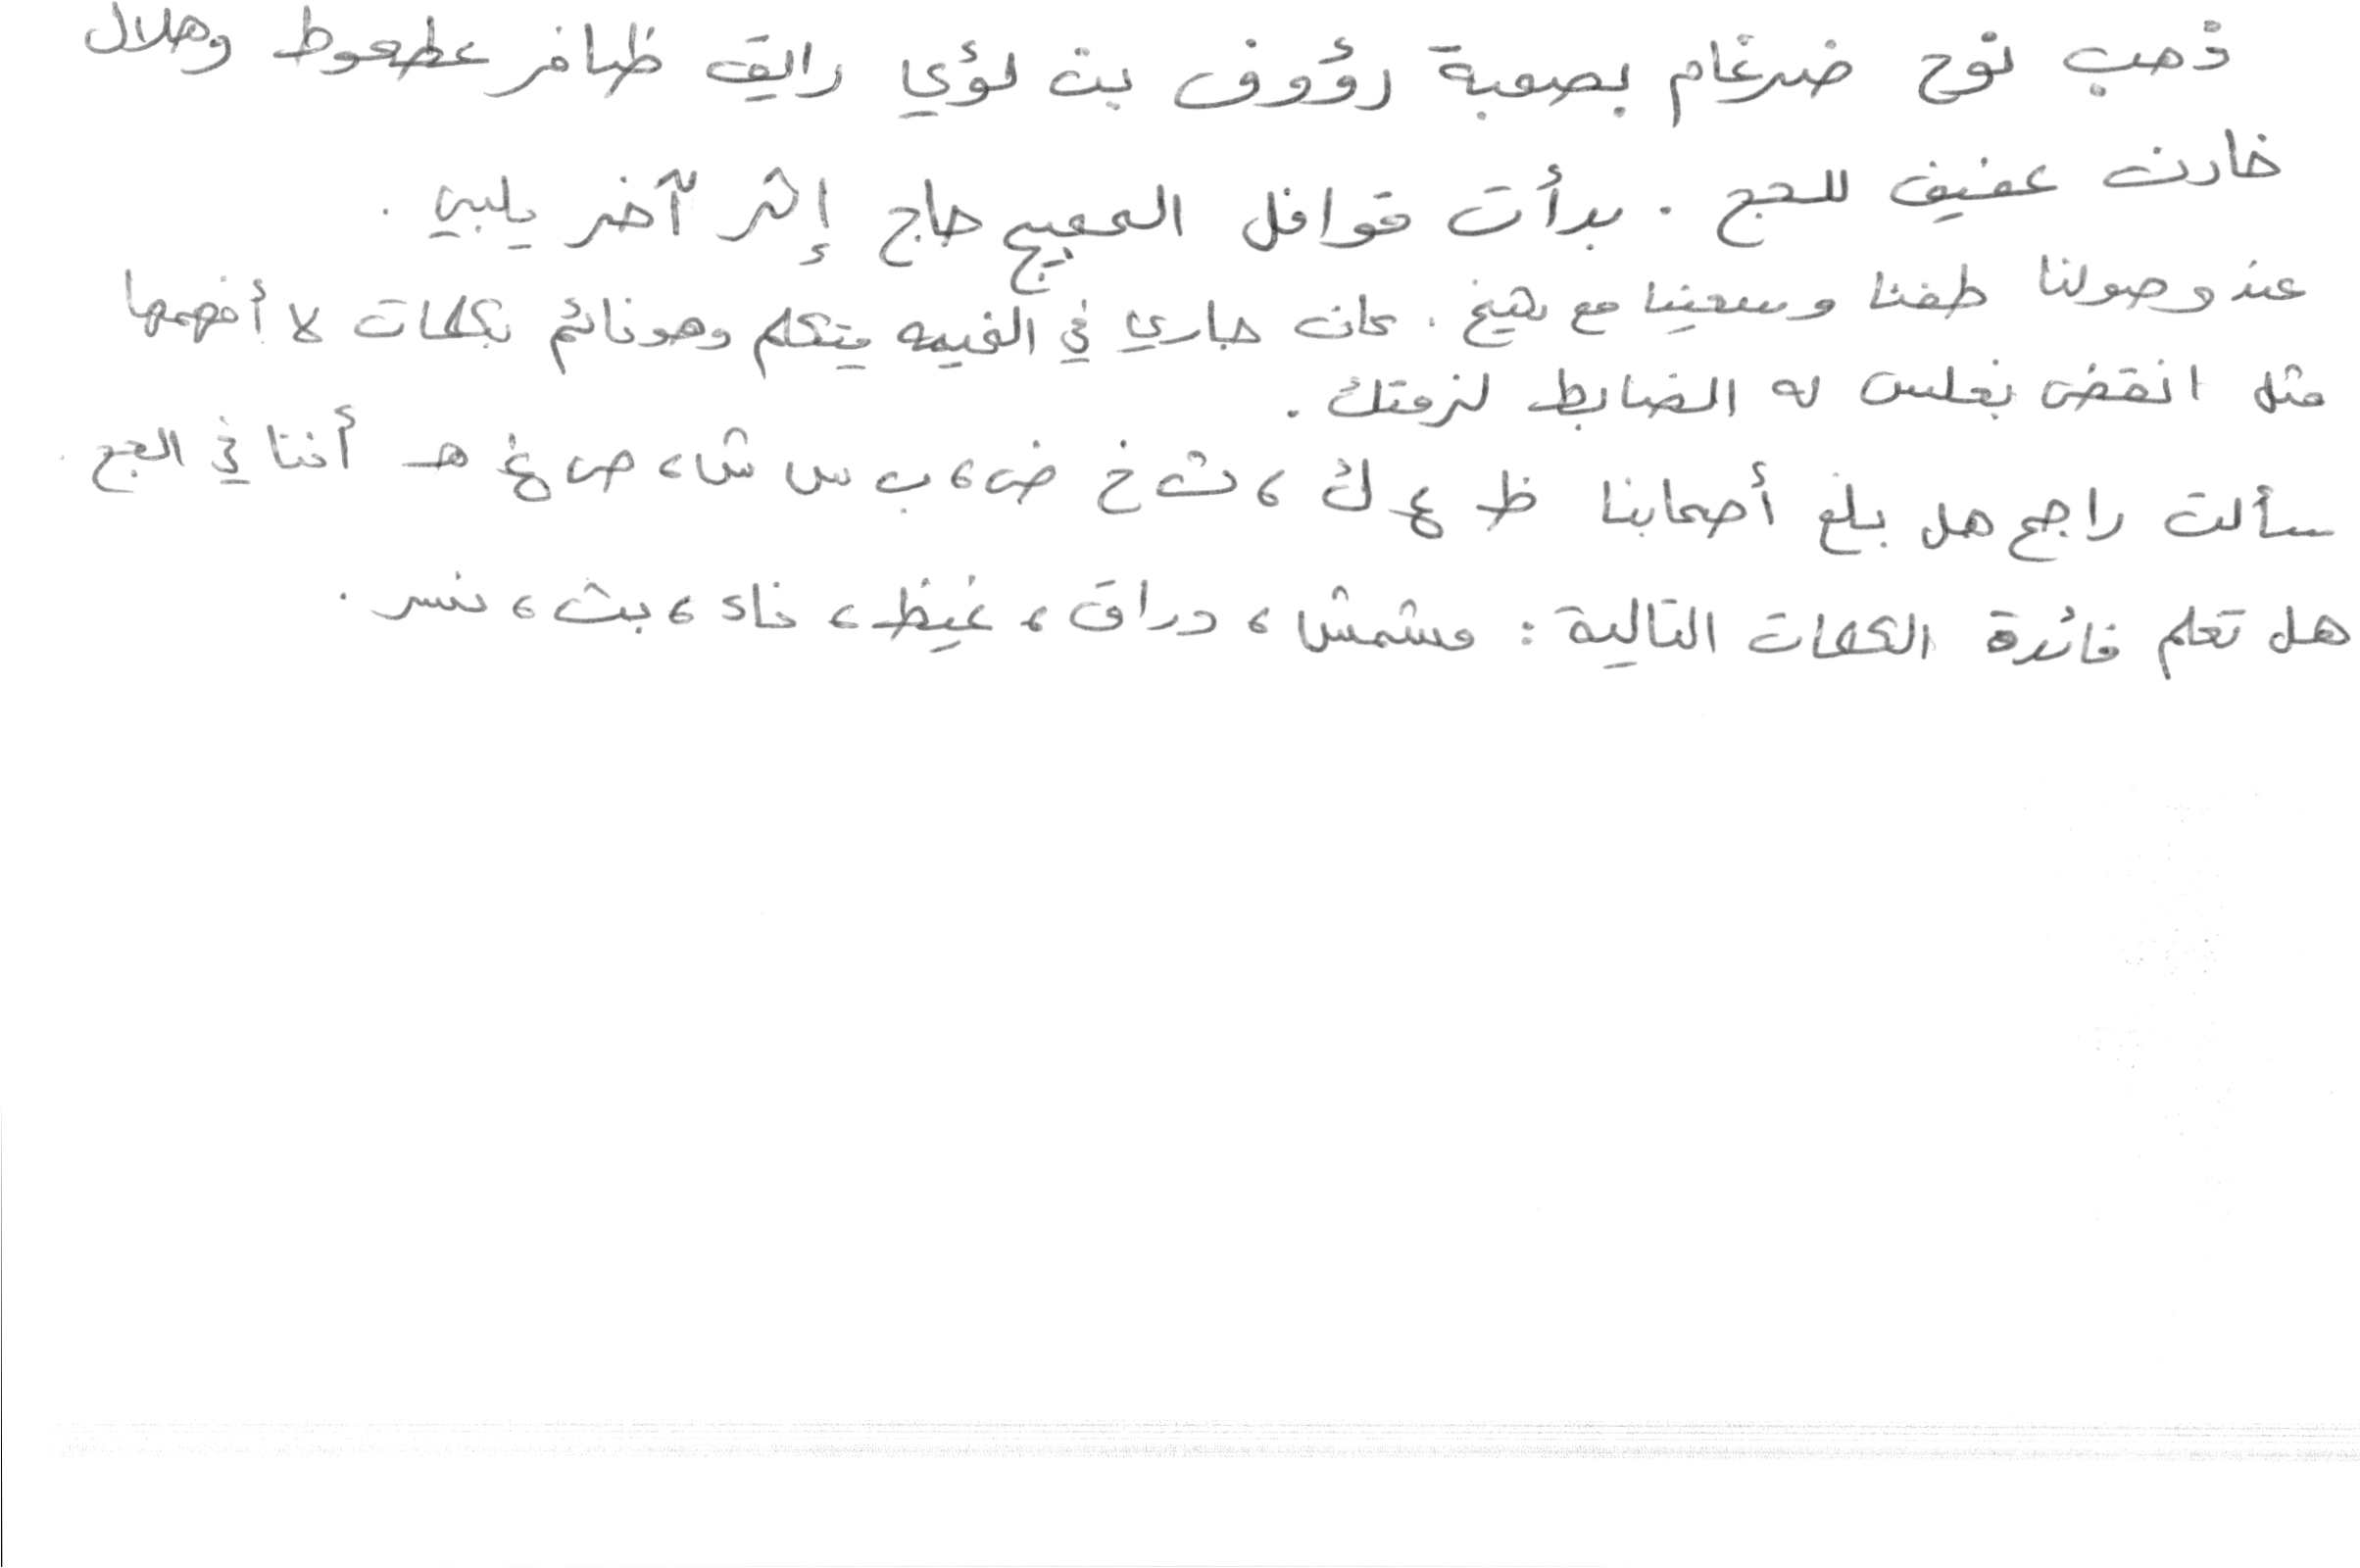 ذهب نوح ضرغام بصحبة رؤوف بن لؤي رايق ظافر عطعوط وهلال
خادن عفيف للحج . بدأت قوافل الحجيج حاج إثر آخر يلبي .
عند وصولنا طفنا وسعينا مع شيخ . كان جاري في الخيمه يتكلم وهو نائم بكلمات لا أفهمها
مثل انقض بغلس له الضابط لنزقتك .
سألت راجح هل بلغ أصحابنا ظ ع ك ، ث خ ض ، ب س ش ، ص غ هـ أننا في الحج .
هل تعلم فائدة الكلمات التالية : مشمش ، دراق ، غيظ ، خاء ، بث ، نسر .